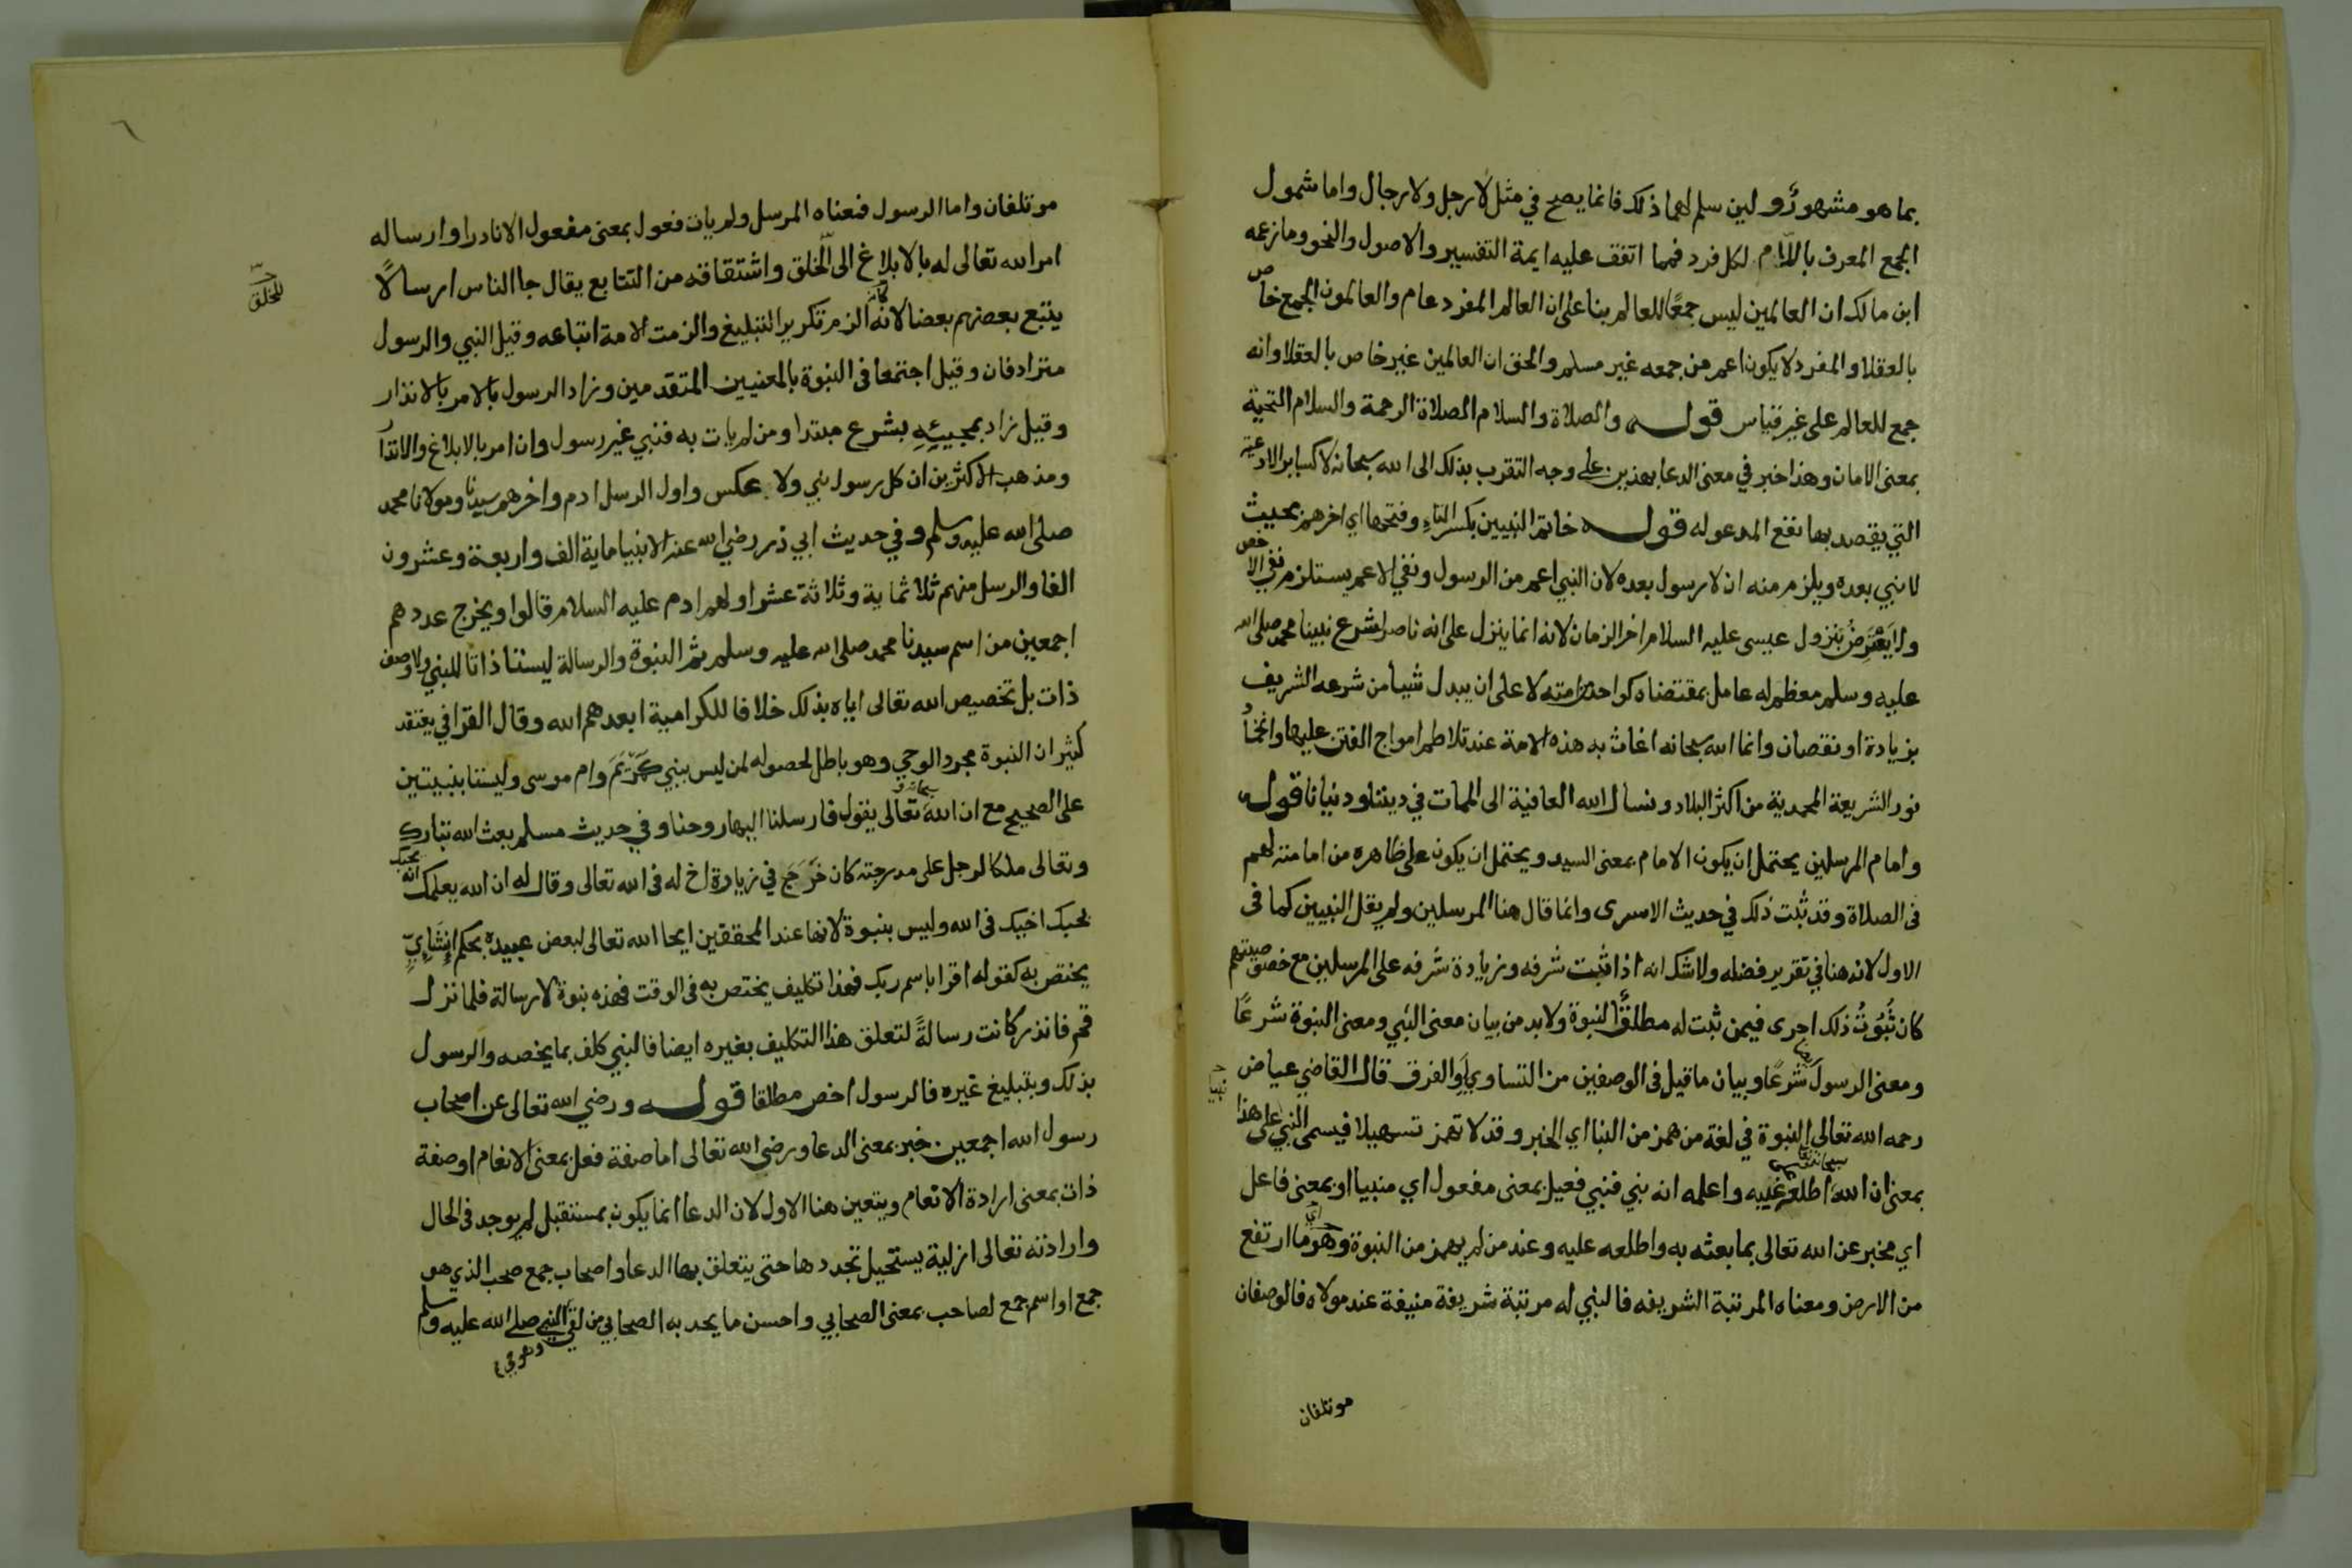 بما هو مشهور ولين سلم لهما ذلك فانما يصح في مثل لا رجل ولا رجال واما شمول
الجمع المعرف باللام لكل فرد فمما اتفق عليه ايمة التفسير والاصول والنحو وما زعمه
ابن مالك ان العالمين ليس جمعًا للعالم بنا على ان العالم المفرد عام والعالمون الجمع خاص
بالعقلا والمفرد لا يكون اعم من جمعه غير مسلم والحق ان العالمين غير خاص بالعقلا وانه
جمع للعالم على غير قياس قوله والصلاة والسلام الصلاة الرحمة والسلام التحية
بمعنى الامان وهذا خبر في معنى الدعا بهذين على وجه التقرب بذلك الى الله سبحانه لا كساير الادعية
التي يقصد بها نفع المدعو له قوله خاتم النبيين بكسر التاء وفتحها اي اخرهم بحيث
لا نبي بعده ويلزم منه ان لا رسول بعده لان النبي اعم من الرسول ونفي الاعم يستلزم نفي الاخص
ولا يعترض بنزول عيسى عليه السلام اخر الزمان لانه انما ينزل على انه ناصر لشرع نبينا محمد صلى الله
عليه وسلم معظم له عامل بمقتضاه كواحد من امته لا على ان يبدل شيا من شرعه الشريف
بزيادة او نقصان وانما الله سبحانه اغاث به هذه الامة عند تلاطم امواج الفتن عليها وانمحا
نور الشريعة المحمدية من اكثر البلاد ونسال الله العافية الى الممات في ديننا ودنيانا قوله
وامام المرسلين يحتمل ان يكون الامام بمعنى السيد ويحتمل ان يكون على ظاهره من امامته لهم
في الصلاة وقد ثبت ذلك في حديث الاسرى وانما قال هنا المرسلين ولم يقل النبيين كما في
الاول لانه هنا في تقرير فضله ولا شك انه اذا ثبت شرفه وزيادة شرفه على المرسلين مع خصوصيتهم
كان ثبوت ذلك احرى فيمن ثبت له مطلق النبوة ولا بد من بيان معنى النبي ومعنى النبوة شرعًا
ومعنى الرسول شرعًا وبيان ما قيل في الوصفين من التساوي او الفرق قال القاضي عياض
رحمه الله تعالى النبوة في لغة من همز من النبا اي الخبر وقد لا تهمز تسهيلا فيسمى النبي على هذا
بمعنى ان الله سبحانه اطلعه غيبه واعلمه انه نبي فنبي فعيل بمعنى مفعول اي منبيا او بمعنى فاعل
اي مخبر عن الله تعالى بما بعثه به واطلعه عليه وعند من لم يهمز من النبوة وهو ما ارتفع
من الارض ومعناه المرتبة الشريفه فالنبي له مرتبة شريفة منيفة عند مولاه فالوصفان
موتلفان
موتلفان واما الرسول فمعناه المرسل ولم يات فعول بمعنى مفعول الا نادرا وارساله
امر الله تعالى له بالابلاغ الى الخلق واشتقاقه من التتابع يقال جا الناس ارسالًا
للخلق
يتبع بعضهم بعضا لانه الزم تكرير التبليغ والزمت الامة اتباعه وقيل النبي والرسول
مترادفان وقيل اجتمعا في النبوة بالمعنيين المتقدمين وزاد الرسول بالامر بالانذار
وقيل زاد بمجيئه بشرع مبتدا ومن لم يات به فنبي غير رسول وان امر بالابلاغ والانذار
ومذهب الاكثرين ان كل رسول نبي ولا عكس واول الرسل ادم واخرهم سيدنا ومولانا محمد
صلى الله عليه وسلم وفي حديث ابي ذر رضي الله عنه الانبيا ماية الف واربعة وعشرون
الفا والرسل منهم ثلاثماية وثلاثة عشر اولهم ادم عليه السلام قالوا ويخرج عددهم
اجمعين من اسم سيدنا محمد صلى الله عليه وسلم ثم النبوة والرسالة ليستا ذاتا للنبي ولا وصف
ذات بل تخصيص الله تعالى اياه بذلك خلافا للكرامية ابعدهم الله وقال القرافي يعتقد
كثير ان النبوة مجرد الوحي وهو باطل لحصوله لمن ليس بنبي كمريم وام موسى وليستا بنبيتين
على الصحيح مع ان الله سبحانه وتعالى يقول فارسلنا اليها روحنا وفي حديث مسلم بعث الله تبارك
وتعالى ملكا لرجل على مدرجته كان خرج في زيارة اخ له في الله تعالى وقال له ان الله يعلمك انه يحبك
لحبك اخيك في الله وليس بنبوة لانها عند المحققين ايحا الله تعالى لبعض عبيده بحكم انشاءي
يختص به كقوله اقرا باسم ربك فهذا تكليف يختص به في الوقت فهذه نبوة لا رسالة فلما نزل
قم فانذر كانت رسالةً لتعلق هذا التكليف بغيره ايضا فالنبي كلف بما يخصه والرسول
بذلك وبتبليغ غيره فالرسول اخص مطلقا قوله ورضي الله تعالى عن اصحاب
رسول الله اجمعين خبر بمعنى الدعا ورضى الله تعالى اما صفة فعل بمعنى الانعام او صفة
ذات بمعنى ارادة الانعام ويتعين هنا الاول لان الدعا انما يكون بمستقبل لم يوجد في الحال
وارادته تعالى ازلية يستحيل تجددها حتى يتعلق بها الدعا واصحاب جمع صحب الذي هو
جمع او اسم جمع لصاحب بمعنى الصحابي واحسن ما يحد به الصحابي من لقي النبي صلى الله عليه وسلم